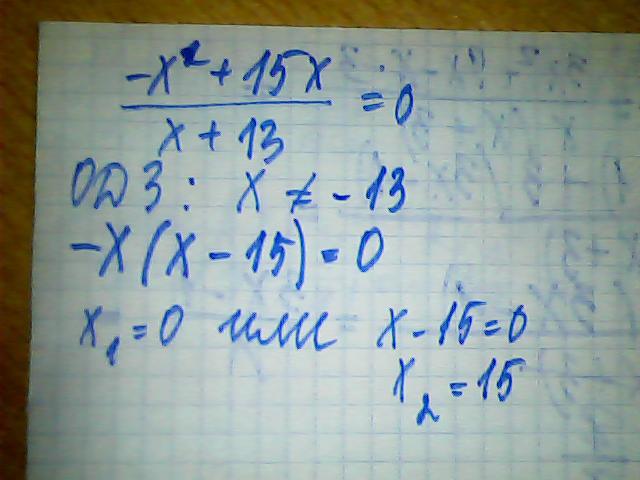 -x² + 15x
/ x + 13 = 0
ОДЗ: x ≠ -13
-x(x - 15) = 0
x₁ = 0 или x - 15 = 0
x₂ = 15